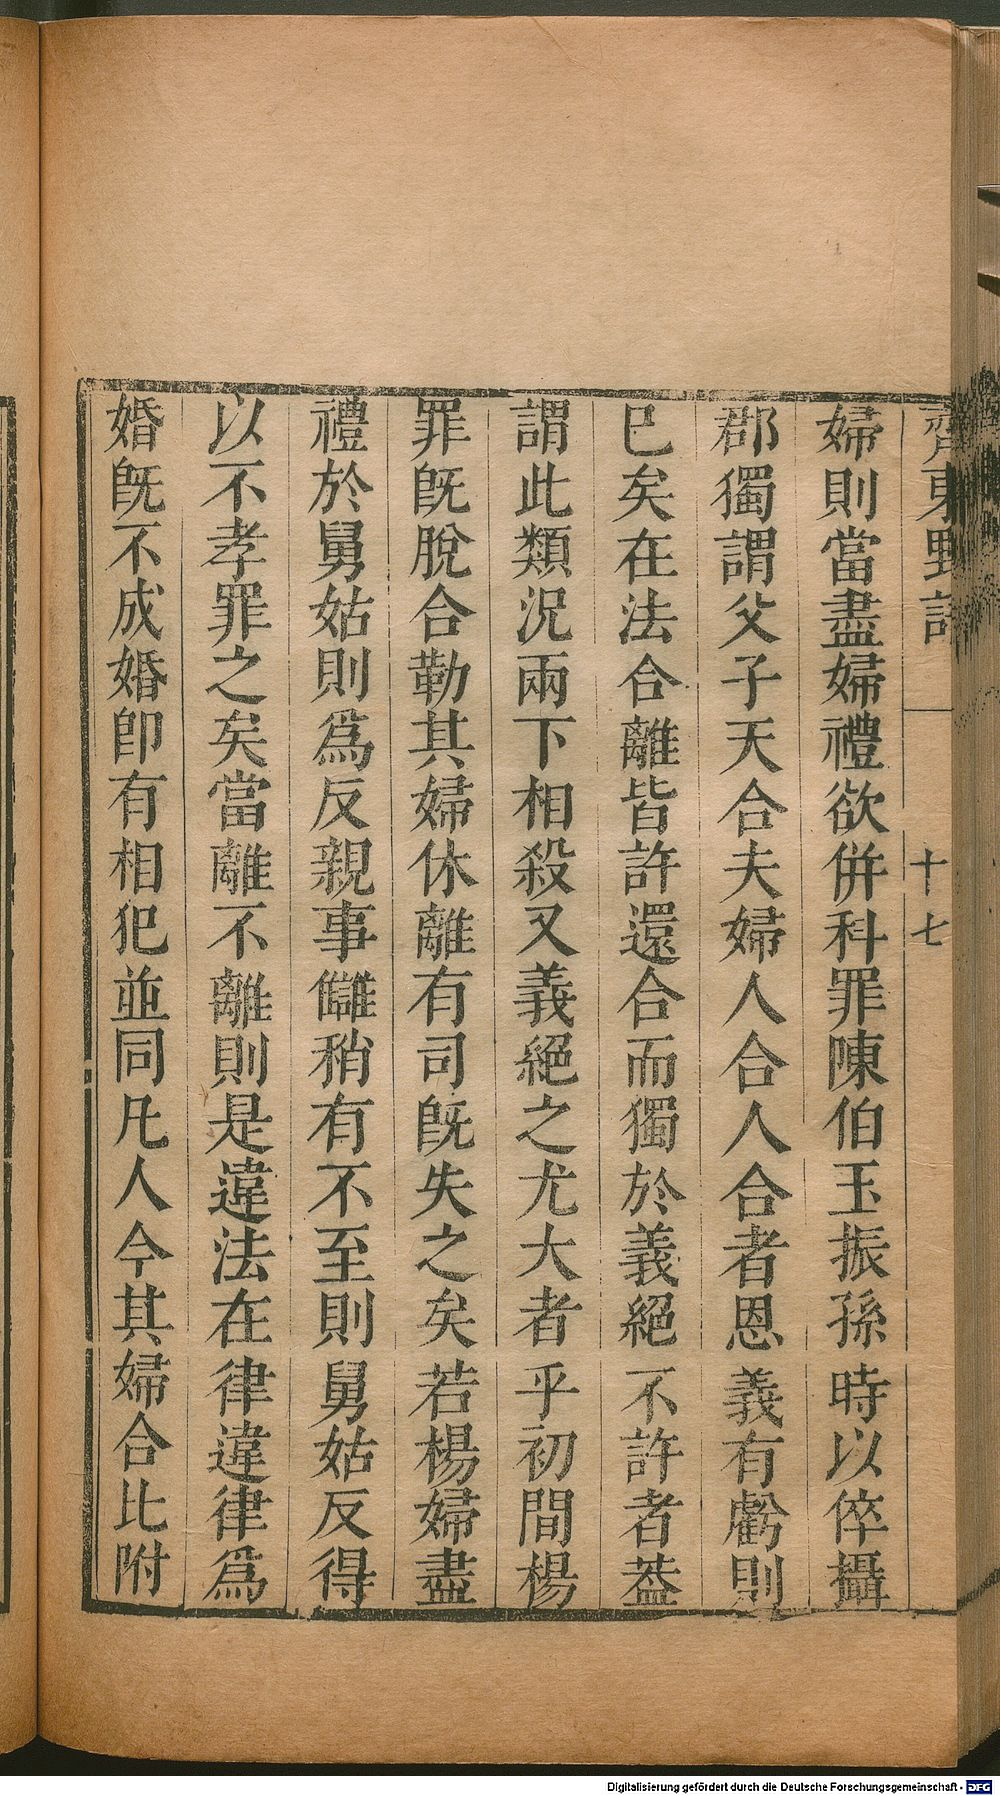 齊東野語
十七
婦則當盡婦禮欲併科罪陳伯玉振孫時以倅攝
郡獨謂父子天合夫婦人合人合者恩義有虧則
巳矣在法合離皆許還合而獨於義絕不許者葢
謂此類況兩下相殺又義絕之尤大者乎初間楊
罪旣脫合勒其婦休離有司旣失之矣若楊婦盡
禮於舅姑則爲反親事讎稍有不至則舅姑反得
以不孝罪之矣當離不離則是違法在律違律爲
婚旣不成婚卽有相犯並同凡人今其婦合比附
Digitalisierung gefördert durch die Deutsche Forschungsgemeinschaft - DFG